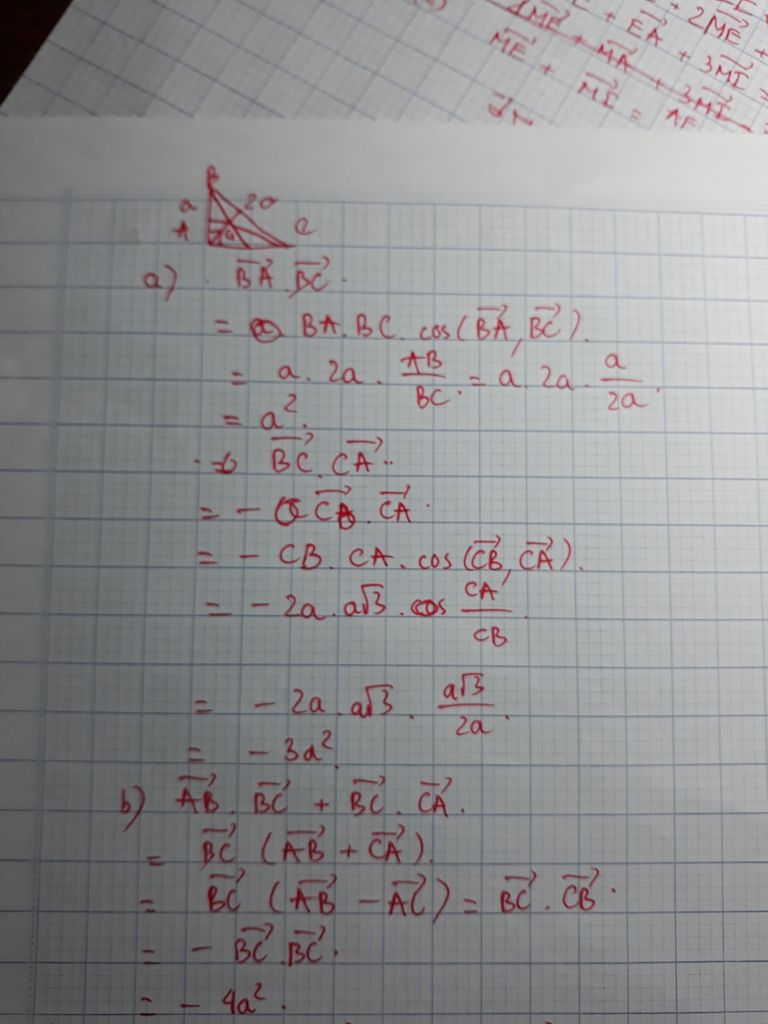 + 2ME +
+ EA + 3MI =
ME + MA + 3MI
ME + MI = AE
B
a 2a
A C
a) \overrightarrow{BA} \overrightarrow{BC}.
= BA. BC. cos(\overrightarrow{BA}, \overrightarrow{BC}).
= a. 2a. \frac{AB}{BC}. = a. 2a. \frac{a}{2a}.
= a^2.
\overrightarrow{BC}. \overrightarrow{CA}..
= - \overrightarrow{CB}. \overrightarrow{CA}.
= - CB. CA. cos(\overrightarrow{CB}, \overrightarrow{CA}).
= - 2a. a\sqrt{3}. \frac{CA}{CB}.
= - 2a. a\sqrt{3}. \frac{a\sqrt{3}}{2a}.
= - 3a^2.
b) \overrightarrow{AB}. \overrightarrow{BC} + \overrightarrow{BC}. \overrightarrow{CA}.
= \overrightarrow{BC} (\overrightarrow{AB} + \overrightarrow{CA}).
= \overrightarrow{BC} (\overrightarrow{AB} - \overrightarrow{AC}) = \overrightarrow{BC}. \overrightarrow{CB}.
= - \overrightarrow{BC}. \overrightarrow{BC}.
= - 4a^2.